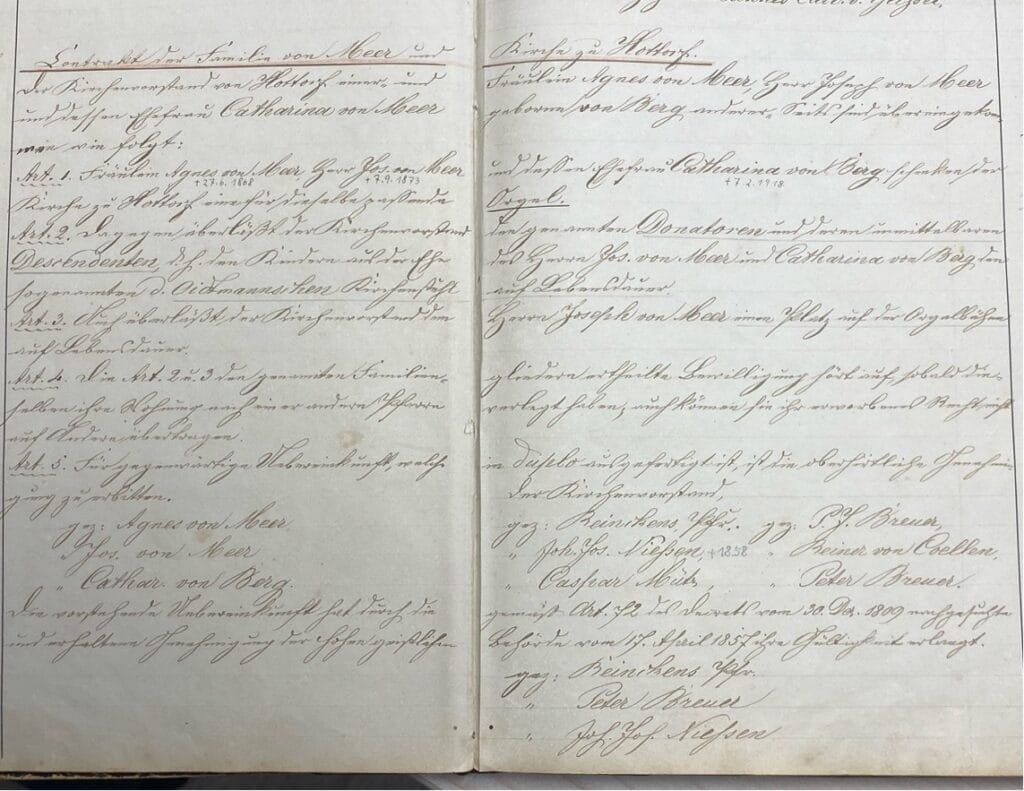 Contrakt der Familie von Meer und Kirche zu Hottorf.
Der Kirchenvorstand von Hottorf einer- und Fräulein Agnes von Meer, Herr Joseph von Meer
und dessen Ehefrau Catharina von Meer geborene von Berg anderer- Seits sind übereingekom-
men wie folgt:
Art. 1. Fräulein Agnes von Meer Herr Jos. von Meer und dessen Ehefrau Catharina von Berg schenken der
+27.6.1868 +7.9.1873 +7.2.1918
Kirche zu Hottorf eine für dieselbe passende Orgel.
Art. 2. Dagegen überläßt der Kirchenvorstand den genannten Donatoren und deren unmittelbaren
Descendenten, d. h. den Kindern aus der Ehe des Herrn Jos. von Meer und Catharina von Berg den
sogenannten d. Oidtmannschen Kirchenstuhl auf Lebensdauer.
Art. 3. Auch überläßt der Kirchenvorstand dem Herrn Joseph von Meer einen Platz auf der Orgelbühne
auf Lebensdauer.
Art. 4. Die Art. 2 u. 3 den genannten Familien- gliedern ertheilte Bewilligung hört auf, sobald die-
selben ihre Wohnung nach einer andern Pfarre verlegt haben, auch können sie ihr erworbenes Recht nicht
auf Andere übertragen.
Art. 5. Für gegenwärtige Uebereinkunft, welche in duplo ausgefertigt ist, ist die oberhirtliche Genehmi-
gung zu erbitten. Der Kirchenvorstand,
gez: Agnes von Meer gez: Reinckens, Pfr. gez: P. J. Breuer,
" Jos. von Meer " Joh. Jos. Nießen, +1858 " Reiner von Coellen,
" Cathar. von Berg. " Caspar Mütz, " Peter Breuer.
Die vorstehende Uebereinkunft hat durch die gemäß Art. 72 des Decrets vom 30. Dez. 1809 nachgesuchte
und erhaltene Genehmigung der hohen geistlichen Behörde vom 17. April 1857 ihre Gültigkeit erlangt.
gez: Reinckens Pfr.
" Peter Breuer
" Joh. Jos. Nießen